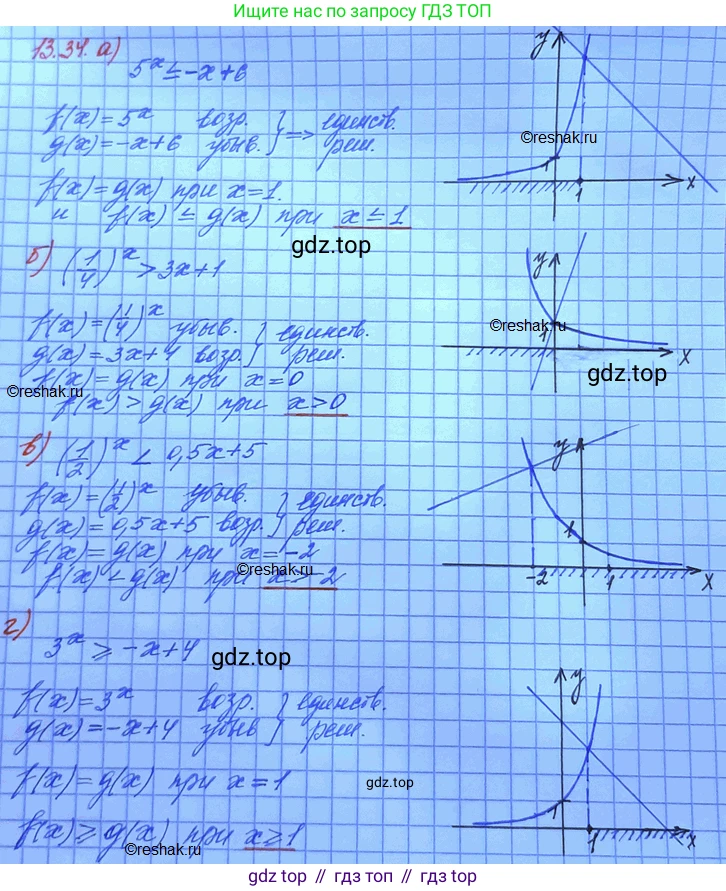 Ищите нас по запросу ГДЗ ТОП
13.34. а)
5^x ≤ -x+6
f(x) = 5^x возр. } => единств.
g(x) = -x+6 убыв. } реш.
f(x) = g(x) при x = 1.
и f(x) ≤ g(x) при x ≤ 1
y
1
1
x
©reshak.ru
gdz.top
б) (1/4)^x > 3x+1
f(x) = (1/4)^x убыв. } единств.
g(x) = 3x+4 возр. } реш.
f(x) = g(x) при x = 0
©reshak.ru
f(x) > g(x) при x > 0
y
1
x
©reshak.ru
gdz.top
в) (1/2)^x < 0,5x+5
f(x) = (1/2)^x убыв. } единств.
g(x) = 0,5x+5 возр. } реш.
f(x) = g(x) при x = -2
f(x) < g(x) при x > -2
©reshak.ru
y
1
-2
1
x
г)
3^x ≥ -x+4
gdz.top
f(x) = 3^x возр. } единств.
g(x) = -x+4 убыв } реш.
f(x) = g(x) при x = 1
gdz.top
f(x) ≥ g(x) при x ≥ 1
©reshak.ru
y
1
1
x
©reshak.ru
gdz top // гдз топ // гдз.топ